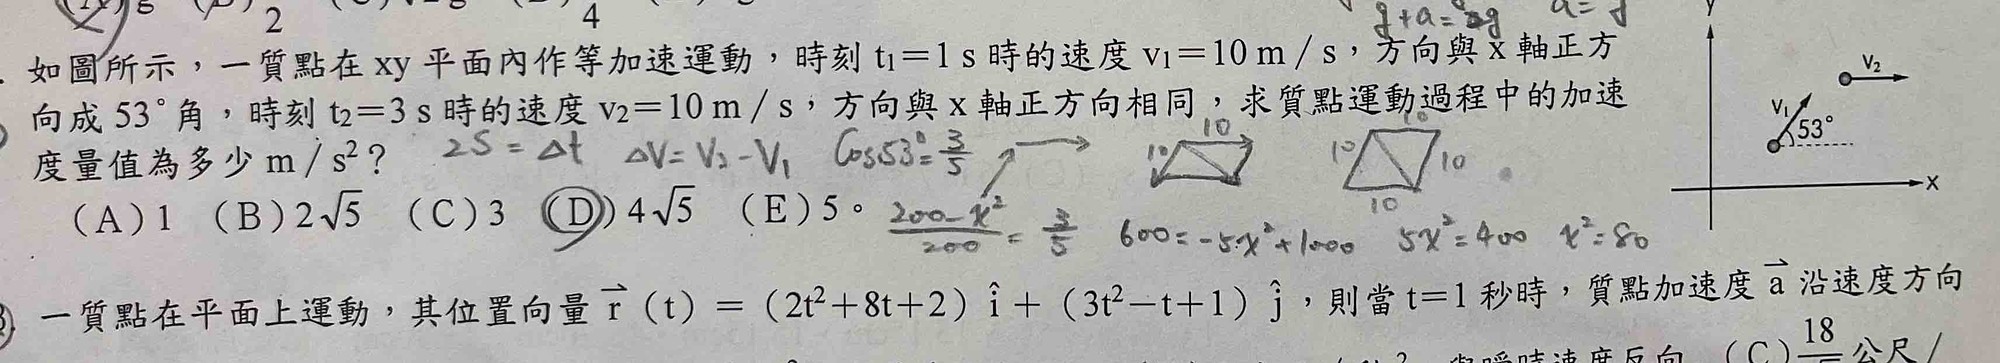 2
4
g+a=
如圖所示，一質點在 xy 平面內作等加速運動，時刻 t₁＝1 s 時的速度 v₁＝10 m／s，方向與 x 軸正方
向成 53°角，時刻 t₂＝3 s 時的速度 v₂＝10 m／s，方向與 x 軸正方向相同，求質點運動過程中的加速
度量值為多少 m／s²？ 2S = Δt ΔV = V₂ - V₁ Cos53° = 3/5
10 10 10 10 10
（A）1 （B）2√5 （C）3 （D）4√5 （E）5。
(200-x²)/200 = 3/5 600 = -5x²+1000 5x²=400 x²=80
y
V₂
V₁
53°
x
一質點在平面上運動，其位置向量 r⃗（t）＝（2t²＋8t＋2）î＋（3t²－t＋1）ĵ，則當 t＝1 秒時，質點加速度 a⃗ 沿速度方向
（C）18 公尺／